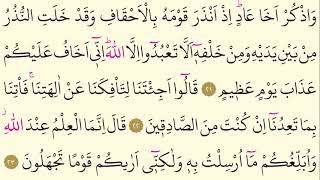 وَاذْكُرْ اَخَا عَادٍ اِذْ اَنْذَرَ قَوْمَهُ بِالْاَحْقَافِ وَقَدْ خَلَتِ النُّذُرُ
مِنْ بَيْنِ يَدَيْهِ وَمِنْ خَلْفِهٖٓ اَلَّا تَعْبُدُٓوا اِلَّا اللّٰهَ اِنّٖٓي اَخَافُ عَلَيْكُمْ
عَذَابَ يَوْمٍ عَظٖيمٍ ٢١ قَالُٓوا اَجِئْتَنَا لِتَأْفِكَنَا عَنْ اٰلِهَتِنَا فَأْتِنَا
بِمَا تَعِدُنَٓا اِنْ كُنْتَ مِنَ الصَّادِقٖينَ ٢٢ قَالَ اِنَّمَا الْعِلْمُ عِنْدَ اللّٰهِ
وَاُبَلِّغُكُمْ مَٓا اُرْسِلْتُ بِهٖ وَلٰكِنّٖٓي اَرٰيكُمْ قَوْمًا تَجْهَلُونَ ٢٣